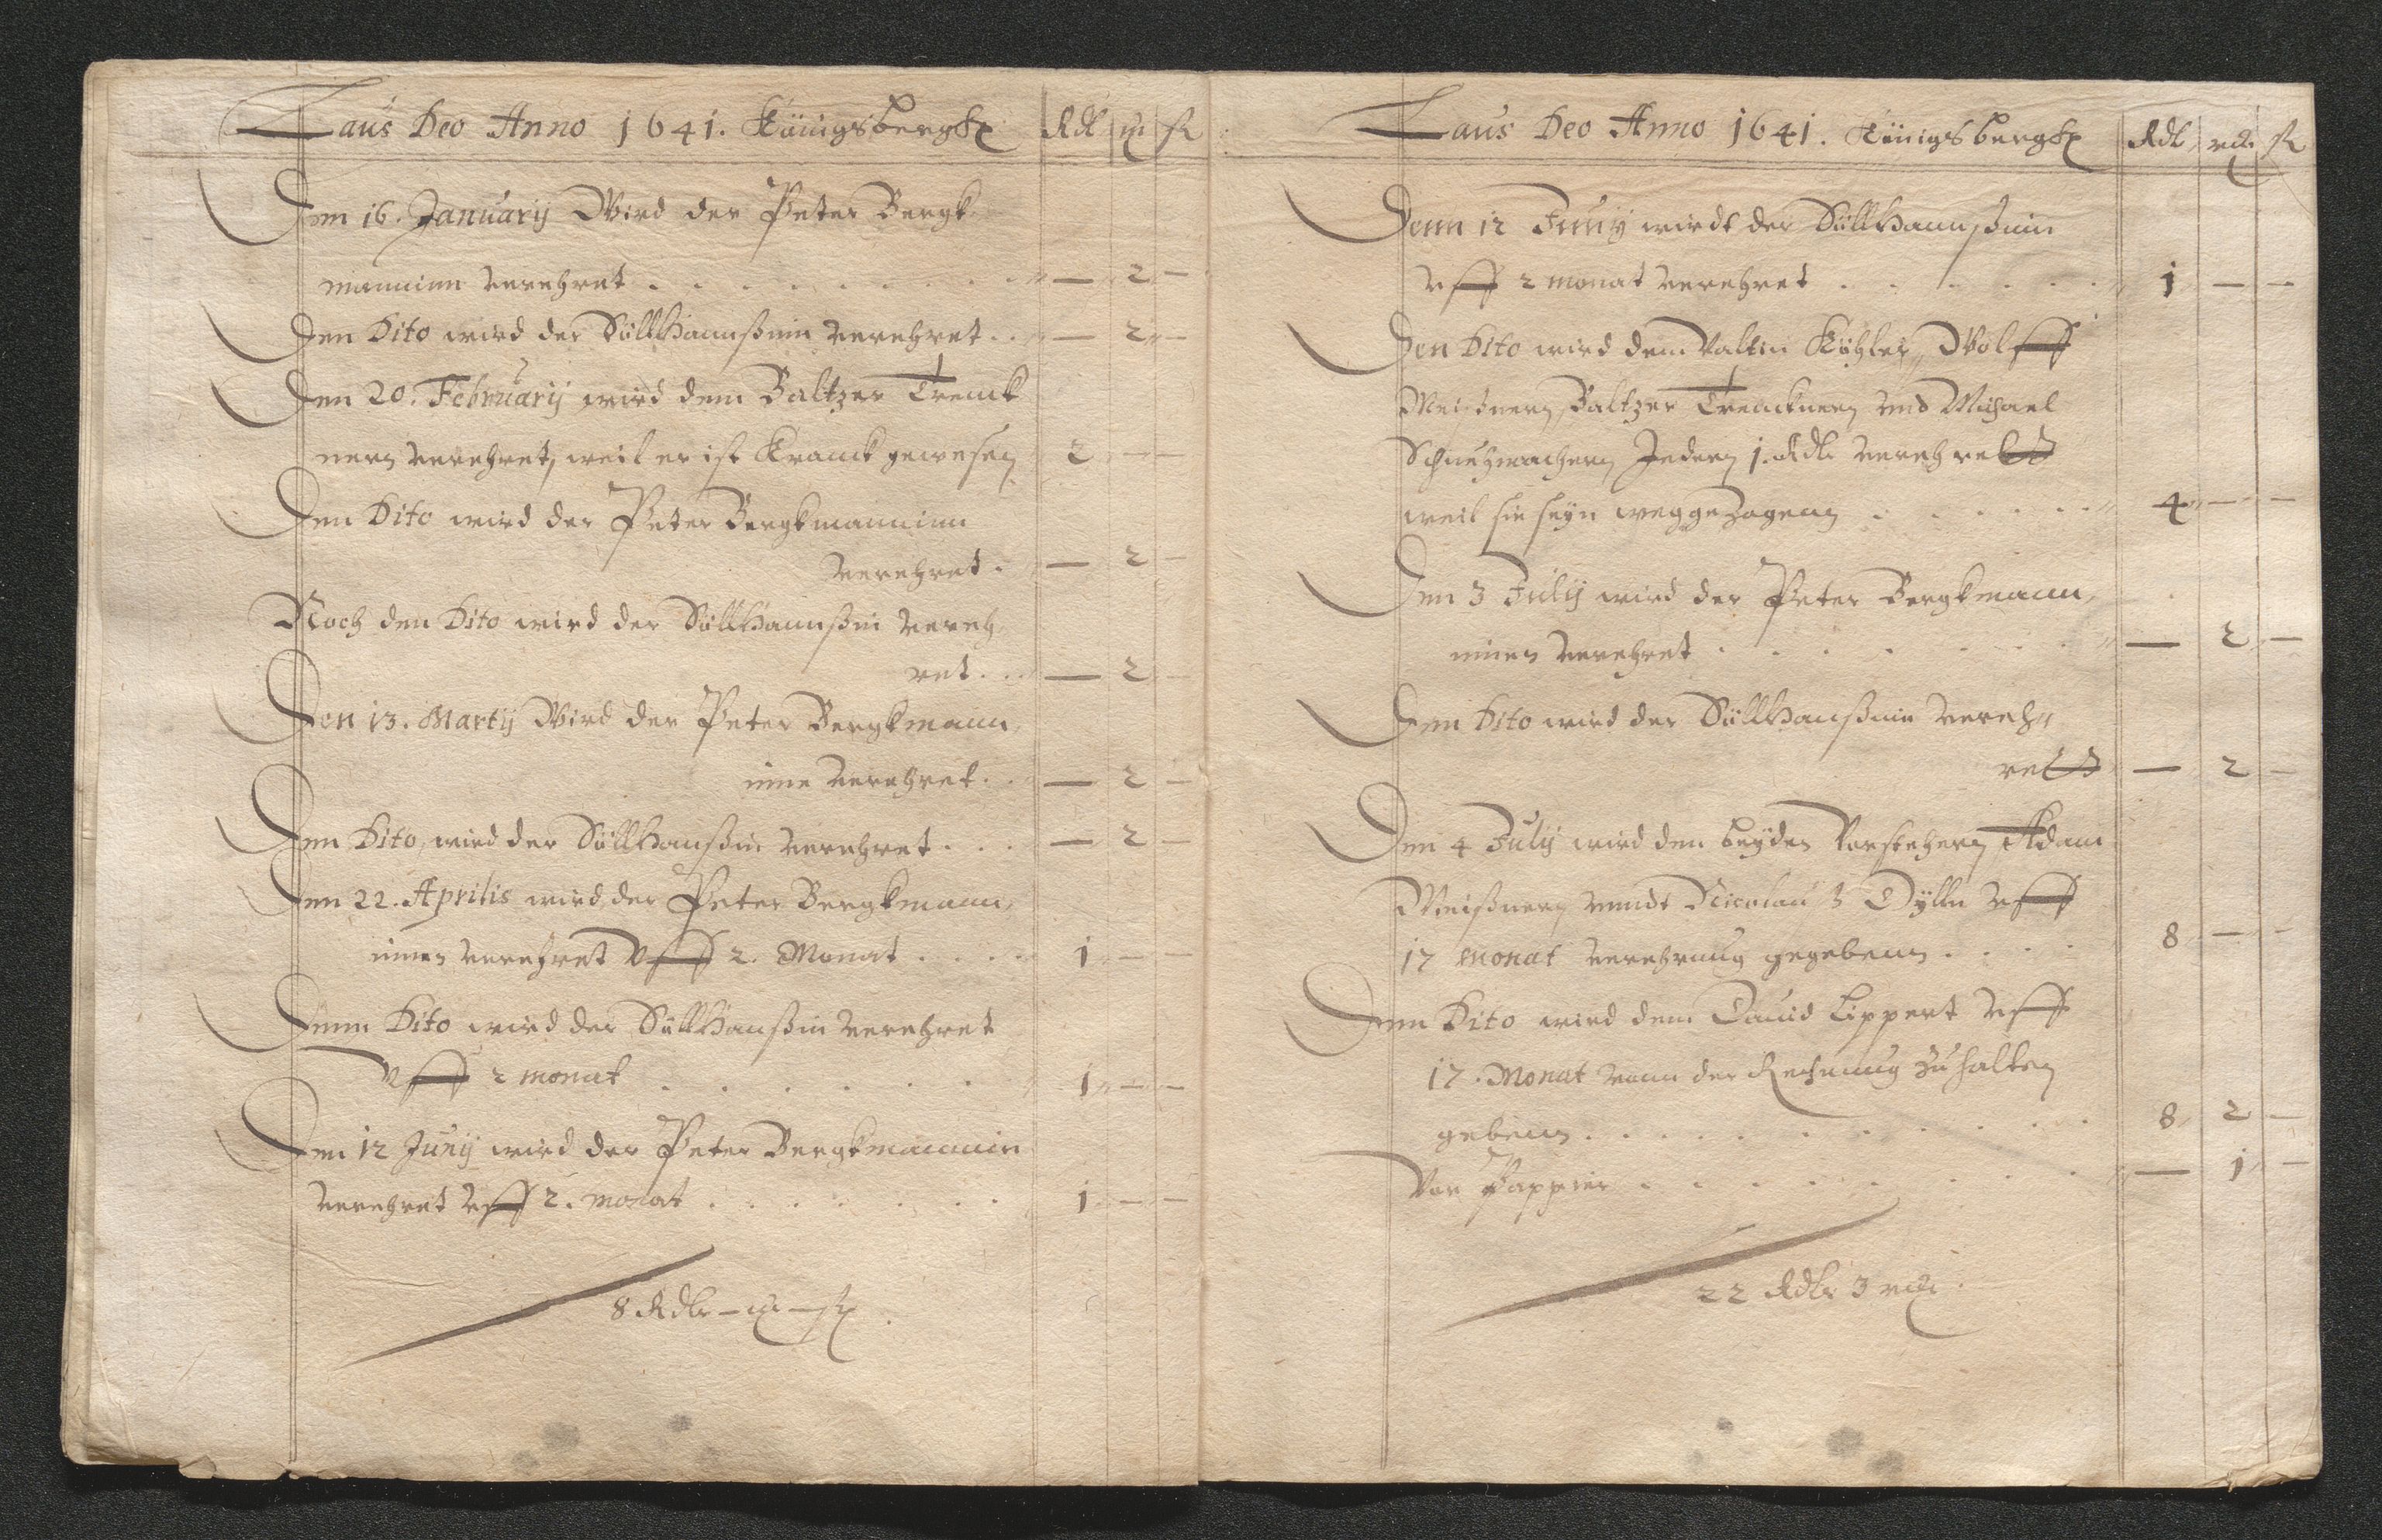 Laus Deo Anno 1641. Königsbergk Rdl ₥ ß
Den 16. January Wird der Peter Bergk
manninn verehret . . . . . . . . — 2 —
Den Dito wird der Süllhannßnin verehret . . — 2 —
Den 20. February wird dem Baltzer Trenck
nern verehret, weil er ist Kranck gewesen 2 — —
Den Dito wird der Peter Bergkmanninn
verehret . — 2 —
Noch den Dito wird der Süllhannßin vereh
ret . . — 2 —
Den 13. Martij Wird der Peter Bergkmann
inne verehret . . — 2 —
Den Dito, wird der Süllhanßin verehret . . . — 2 —
Den 22. Aprilis wird der Peter Bergkmann,
innen verehret Vff 2. Monat . . . . 1 — —
Denn Dito wird der Süllhanßin verehret
Vff 2 monat . . . . . . . 1 — —
Den 12 Juny wird der Peter Bergkmannin
verehret vff 2. monat . . . . . . 1 — —
8 Rdlr — ₥ — ß .
Laus Deo Anno 1641. Königsbergk Rdl ₥ ß
Denn 12 Juny wirdt der Süllhannßnin
vff 2 monat verehret . . . . . . 1 — —
Den Dito wird dem Valtin Köhler, Wolff
Meißnern, Baltzer Trencknern vnd Michael
Schuchmachern Jedern 1. Rdlr verehrett
weil sie seyn weggezogenn . . . . . . 4 — —
Den 3 July wird der Peter Bergkmann,
innen verehret . . . . . . . — 2 —
Den Dito wird der Süllhanßnin vereh
rett — 2 —
Den 4 July wird den beyden Vorstehern Adam
Meißnern vnndt Nicolaus Dylln vff
17 monat verehrung gegebenn . . . . 8 — —
Denn Dito wird dem Dauid Lippert vff
17. Monat vonn der Rechnung zu halten
gebenn . . . . . . . . . . 8 2 —
Vor Pappier . . . . . . . . . — 1 —
22 Rdlr 3 ₥ .